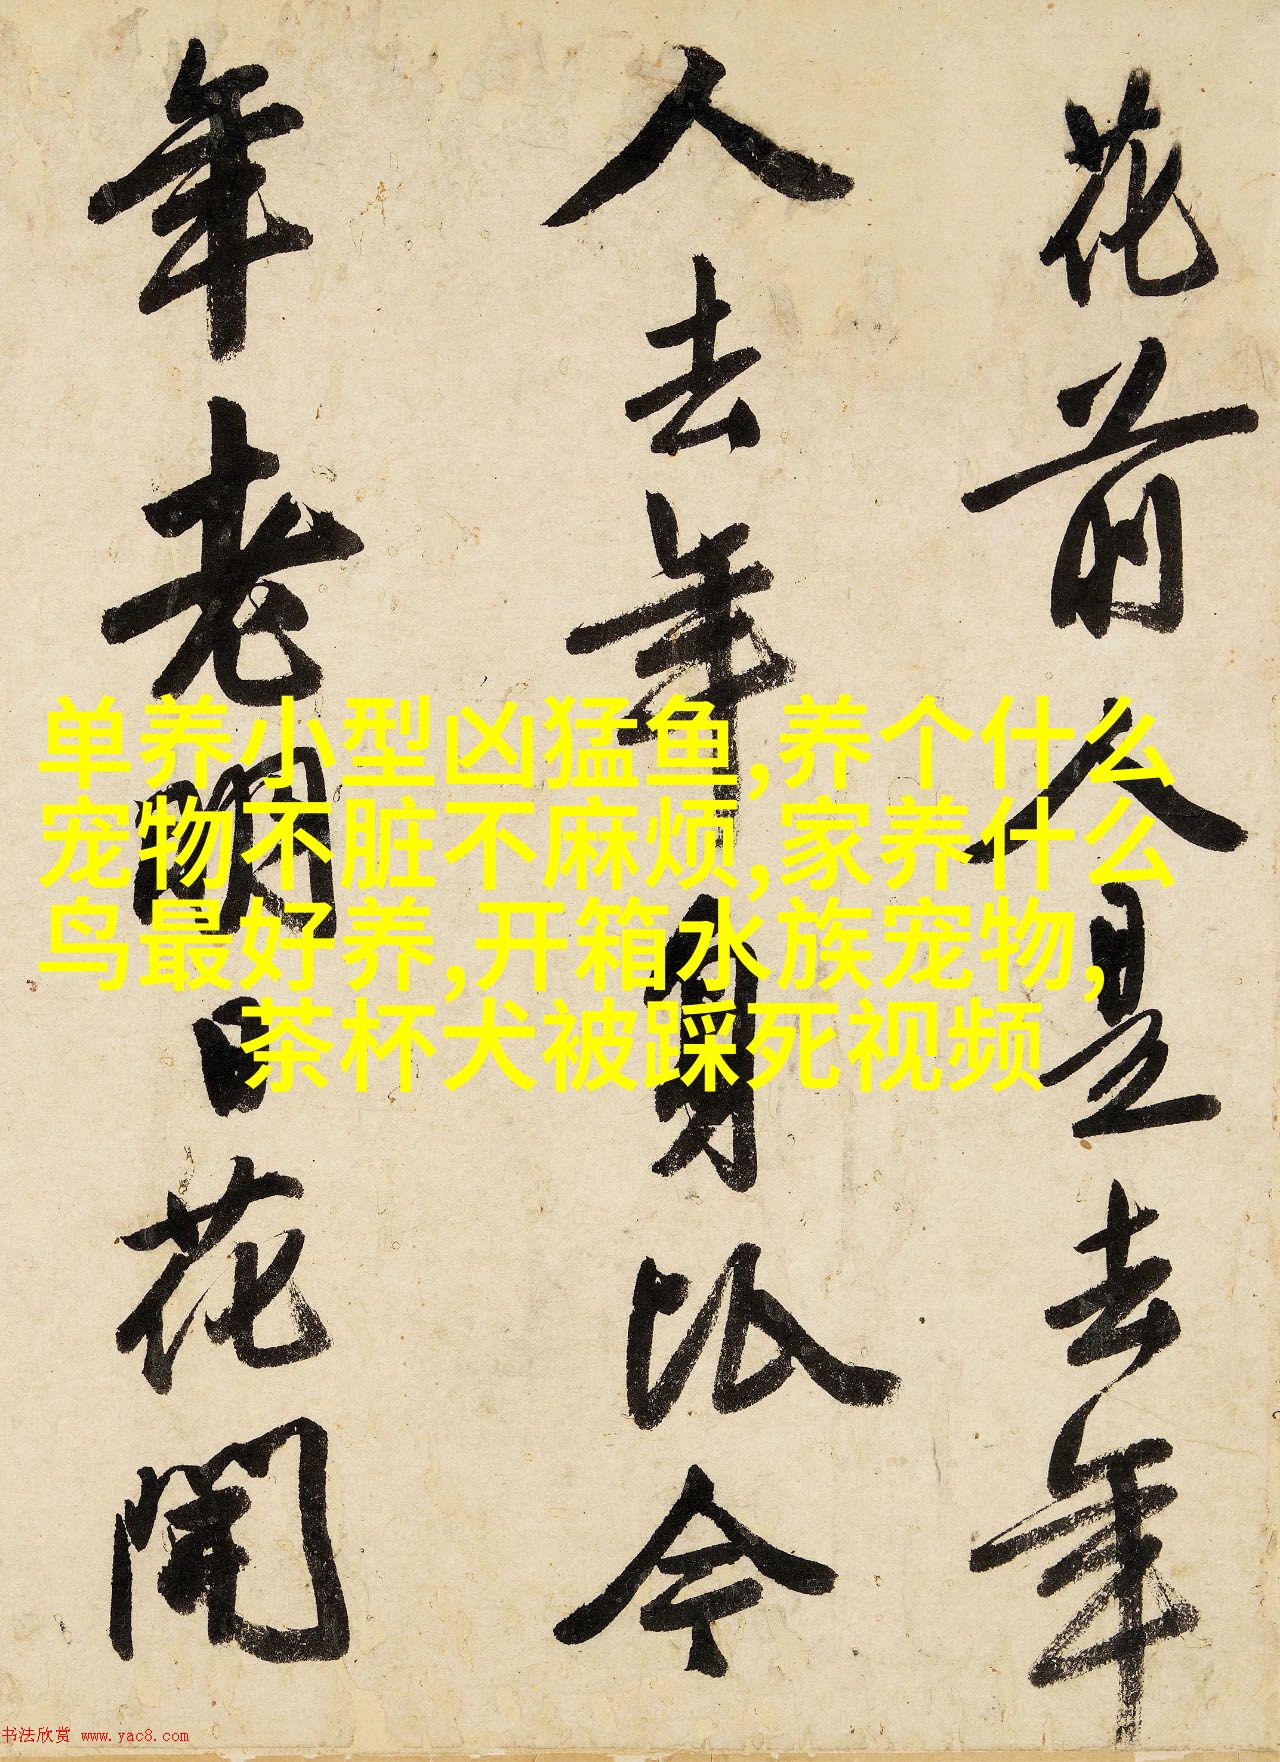 花前人是去年
人去年身比今
年老明日花開
单养小型凶猛鱼,养个什么
宠物不脏不麻烦,家养什么
鸟最好养,开箱水族宠物,
茶杯犬被踩死视频
书法欣赏 www.yac8.com